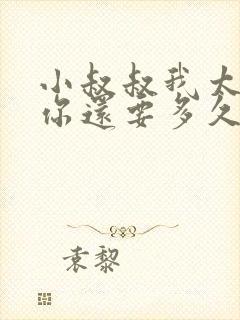 小叔叔我大
你還要多久
袁黎